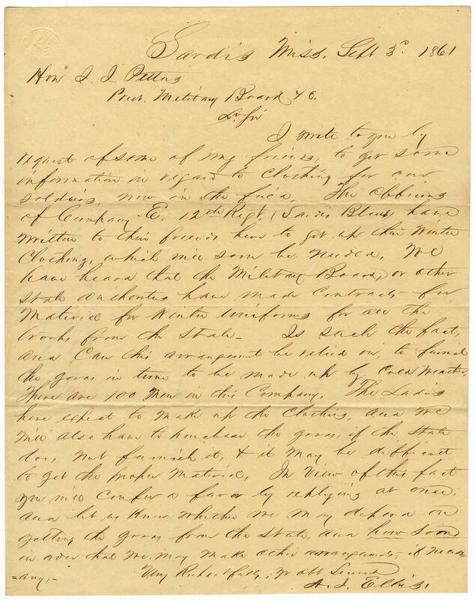 Sardis Miss. Sept 3d. 1861
Hon J J Pettus
Prest. Military Board &C.
Dr Sir
I write to you by
request of some of my friends, to get some
information in regard to Clothing for our
soldiers, now in the field. The Officers
of Company E. 12th Regt, (Sardis Blues) have
written to their friends here to get up their Winter
Clothing, which will soon be needed. We
have heard that the Military Board, or other
State authorities have made Contracts for
Material for Winter Uniforms for all the
troops from the State - Is such the fact,
and Can this arrangement be relied on, to furnish
the goods in time to be made up by Cold Weather.
There are 100 Men in this Company. The Ladies
here expect to make up the Clothing, and we
will also have to purchase the goods if the State
does not furnish it, & it may be difficult
to get the proper Material. In View of this fact
you will Confer a favor by replying at once,
and let us Know whether we may depend on
getting the goods from the State, and how soon
in order that we may make other arrangements, if necess
=ary. -
Very Respectfully, Yr obt Servant
A. J. Ellis.